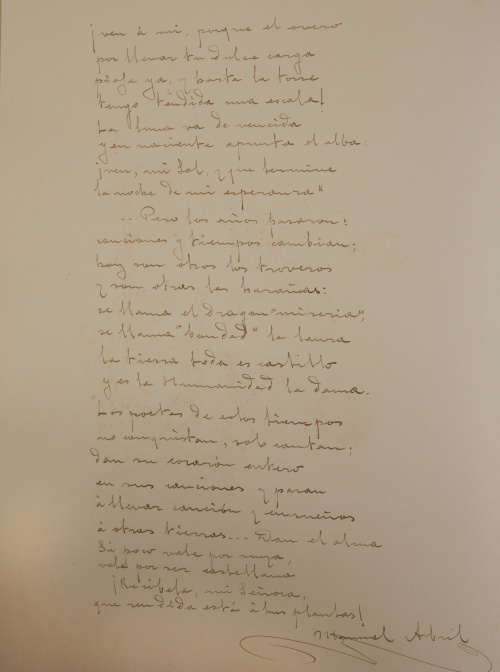 ¡ven á mí, porque el overo
por llevar tu dulce carga
piafa ya, y hasta la torre
tengo tendida una escala!
La luna va de vencida
y en naciente apunta el alba:
¡ven, mi Sol, y que termine
la noche de mi esperanza"
...Pero los años pasaron:
canciones y tiempos cambian;
hoy son otros los troveros
y son otras las hazañas:
se llama el Dragon "miseria",
se llama "bondad" la laura
la tierra toda es castillo
y es la Humanidad la dama.
Los poetas de estos tiempos
no conquistan, solo cantan;
dan su corazón entero
en sus canciones y pasan
á llevar canción y ensueños
á otras tierras... Dan el alma
Si poco vale por suya,
vale por ser castellana
¡Recibela, mi Señora,
que rendida está á tus plantas!
Manuel Abril